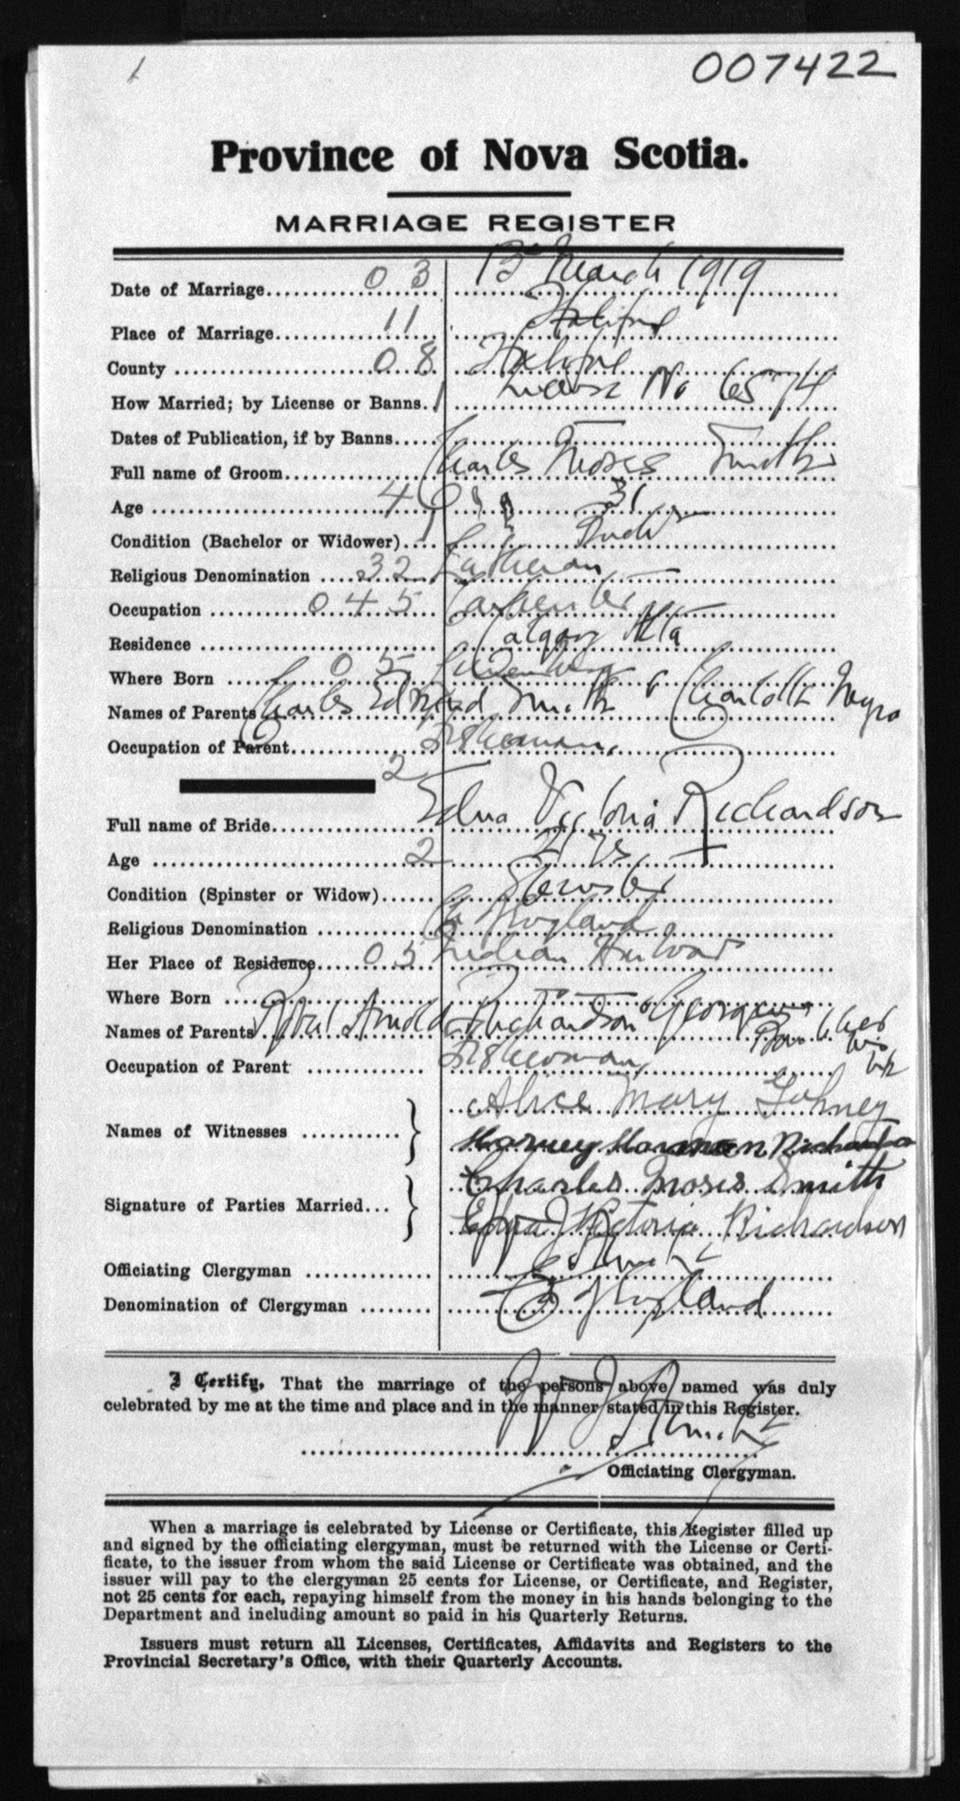 1
007422
Province of Nova Scotia.
MARRIAGE REGISTER
Date of Marriage 03 13 March 1919
Place of Marriage 11 Halifax
County 08 Halifax
How Married; by License or Banns. 1 License No 6574
Dates of Publication, if by Banns
Full name of Groom Charles Moses Smith
Age 40 31
Condition (Bachelor or Widower) 1
Religious Denomination 32 Lutheran
Occupation 045 Carpenter
Residence Calgary Alta
Where Born 05 Lunenburg
Names of Parents Charles Edward Smith & Charlotte
Occupation of Parent Fisherman
2
Full name of Bride Edna Victoria Richardson
Age 2 21 yrs
Condition (Spinster or Widow) Spinster
Religious Denomination C England
Her Place of Residence 05 Indian Harbour
Where Born
Names of Parents Arnold Richardson
Occupation of Parent Fisherman
Names of Witnesses Alice Mary
Harvey Richardson
Signature of Parties Married Charles Moses Smith
Edna Victoria Richardson
Officiating Clergyman
Denomination of Clergyman C England
I Certify, That the marriage of the persons above named was duly
celebrated by me at the time and place and in the manner stated in this Register.
Officiating Clergyman.
When a marriage is celebrated by License or Certificate, this Register filled up
and signed by the officiating clergyman, must be returned with the License or Certi-
ficate, to the issuer from whom the said License or Certificate was obtained, and the
issuer will pay to the clergyman 25 cents for License, or Certificate, and Register,
not 25 cents for each, repaying himself from the money in his hands belonging to the
Department and including amount so paid in his Quarterly Returns.
Issuers must return all Licenses, Certificates, Affidavits and Registers to the
Provincial Secretary's Office, with their Quarterly Accounts.